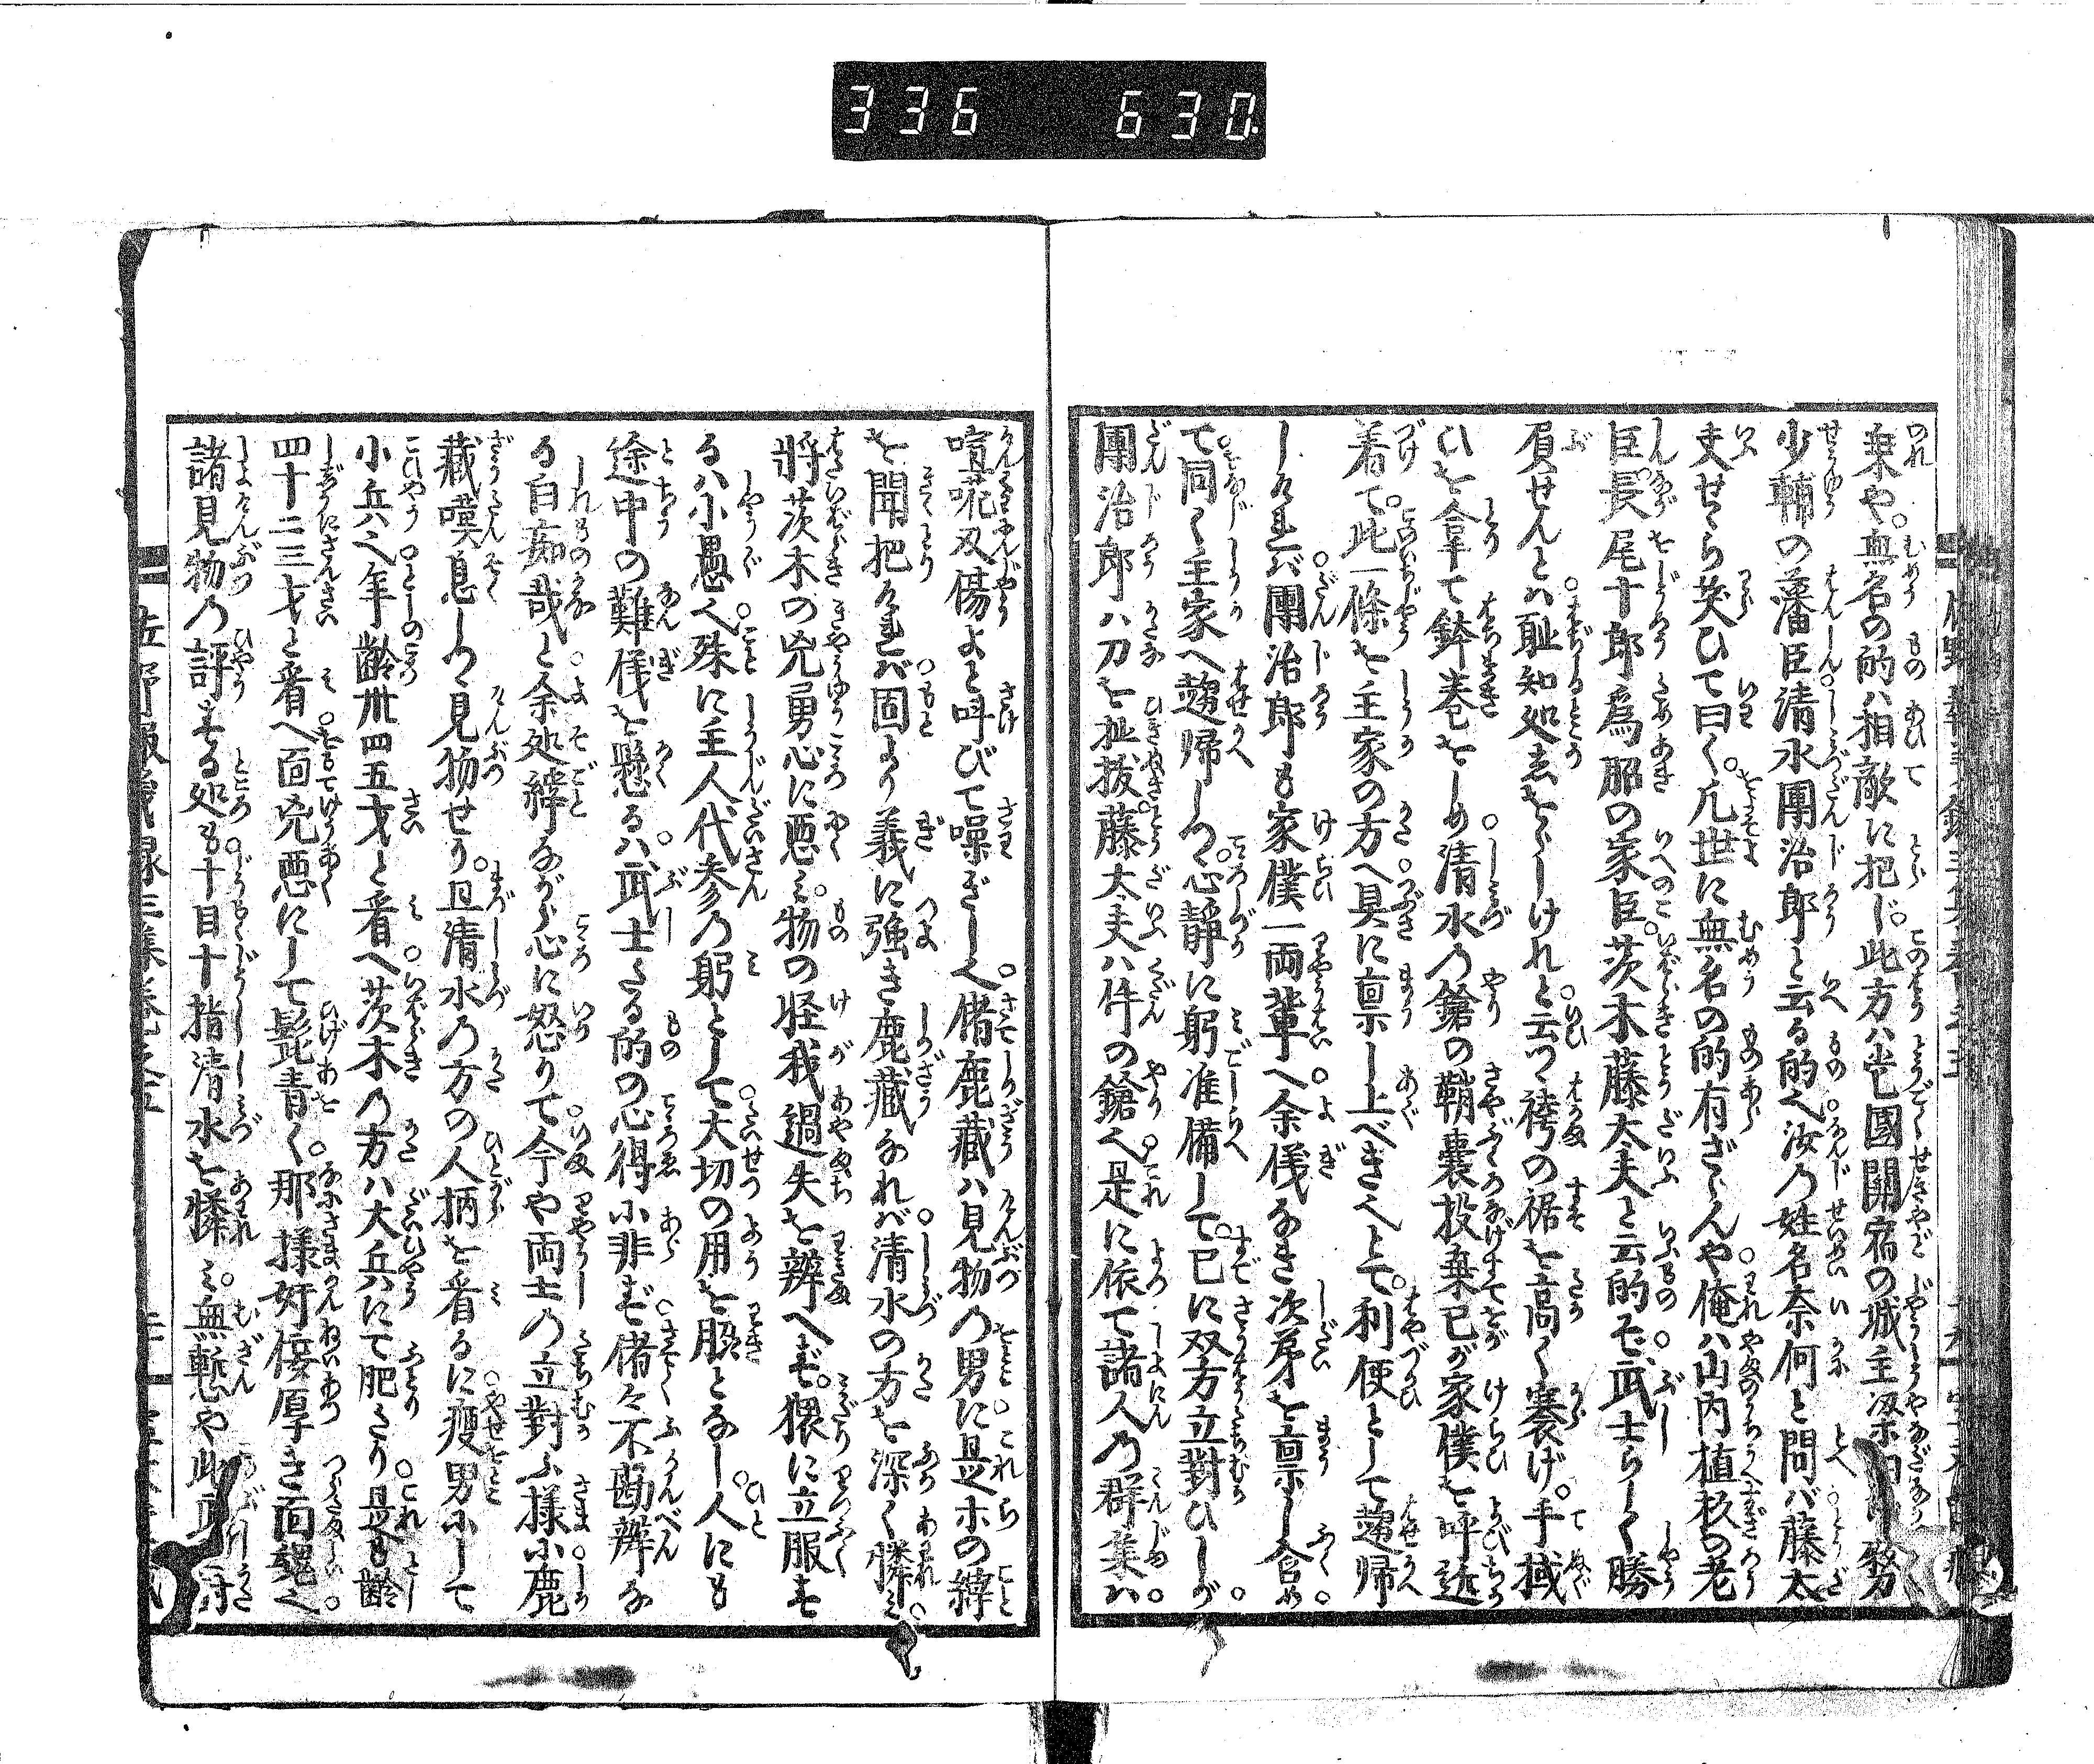 336 630.
乗や。無名の的ハ相敵に把じ。此方ハ当国関宿の城主
少輔の藩臣清水團治郎と云る的也汝乃姓名奈何と問バ藤太
夫せゝら笑ひて曰く。凡世に無名の的有ざらんや俺ハ山内植杉の老
臣。長尾十郎為那の家臣。茨木藤太夫と云的ぞ武士らしく勝
負せんとハ耻知処ゑをらしけれと云つゝ袴の裾を高く褰げ。手拭
ひを拿て鉢巻をしめ清水乃鎗の鞘嚢投棄已が家僕を呼近
着て。此一條を主家の方へ具に稟し上べき也とて。利便として趨帰
しければ團治郎も家僕一両輩へ余儀なき次第を稟し含め
て同く主家へ趨帰しつ。心静に躬准備して。已に双方立對ひしが
團治郎ハ刀を抜。藤太夫ハ件の鎗也是に依て諸人乃群集ハ
喧花刄傷よと呌びて噪ぎし也。偖鹿藏ハ見物乃男に是ホの縡
を聞把ければ固より義に強き鹿藏なれバ清水の方を深く憐ミ
將茨木の兇勇心に悪ミ。物の怪我過失を辨へず。猥に立服す
るハ小愚也殊に主人代参乃躬として大切の用を股となし。人にも
途中の難儀を懸るハ武士たる的の心得に非ず偖々不勘辨な
る白痴哉と余処縡ながら心に怒りて今や両士の立對ふ様に鹿
藏嘆息しつゝ見物せり。且清水乃方の人柄を看るに痩男にして
小兵也年齢卅四五才と看へ茨木乃方ハ大兵にて肥たり是も齢
四十二三才と看へ面兇悪にして髭青く。那様奸佞厚き面魂也
諸見物乃評する処も十目十指清水を憐ミ。無慙や此